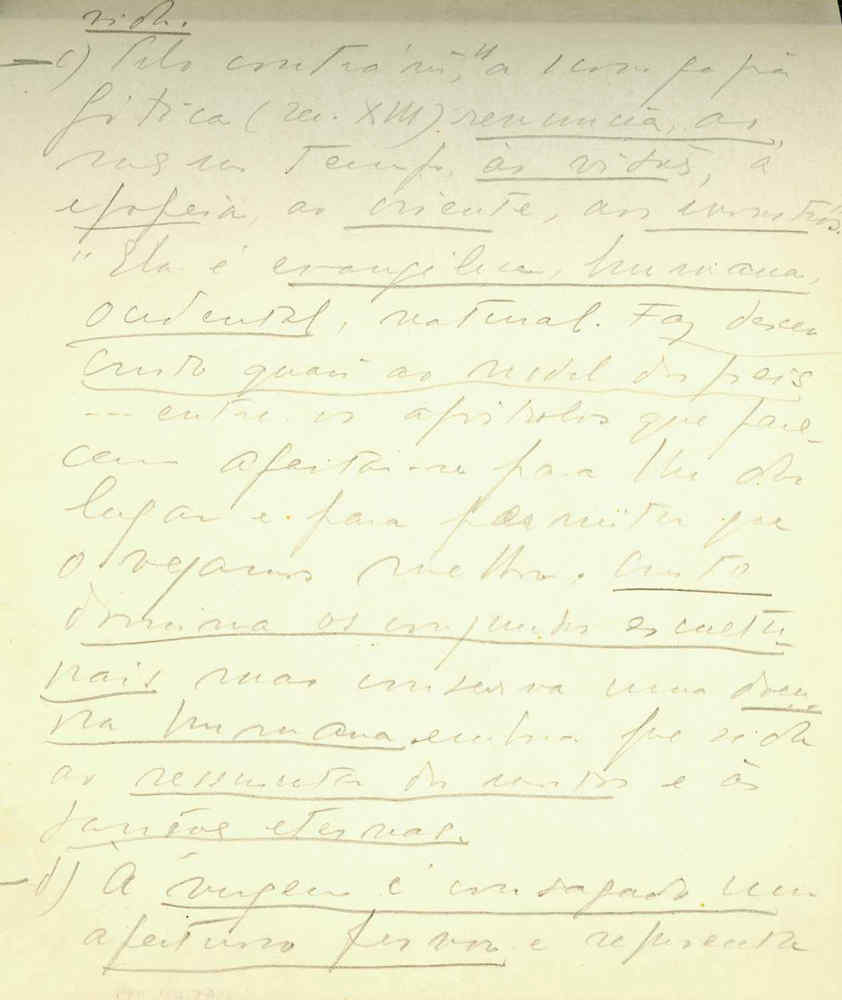 vida.
- c) Pelo contrário, "a iconografia
gótica (sec. XIII) renuncia, ao
mesmo tempo, às visões, à
epopeia, ao oriente, aos monstros.
"Ela é evangélica, humana,
ocidental, natural. Faz descer
Cristo quasi ao nivel dos fieis
--- entre os apóstolos que pare-
cem afastar-se para lhe dar
lugar e para permitir que
o vejamos melhor. Cristo
domina os conjuntos escultu
rais mas conserva uma doçu
ra humana, embora presida
ao ressuscitar dos mortos e às
sanções eternas.
- d) À virgem é consagrado um
afectuoso fervor e representa